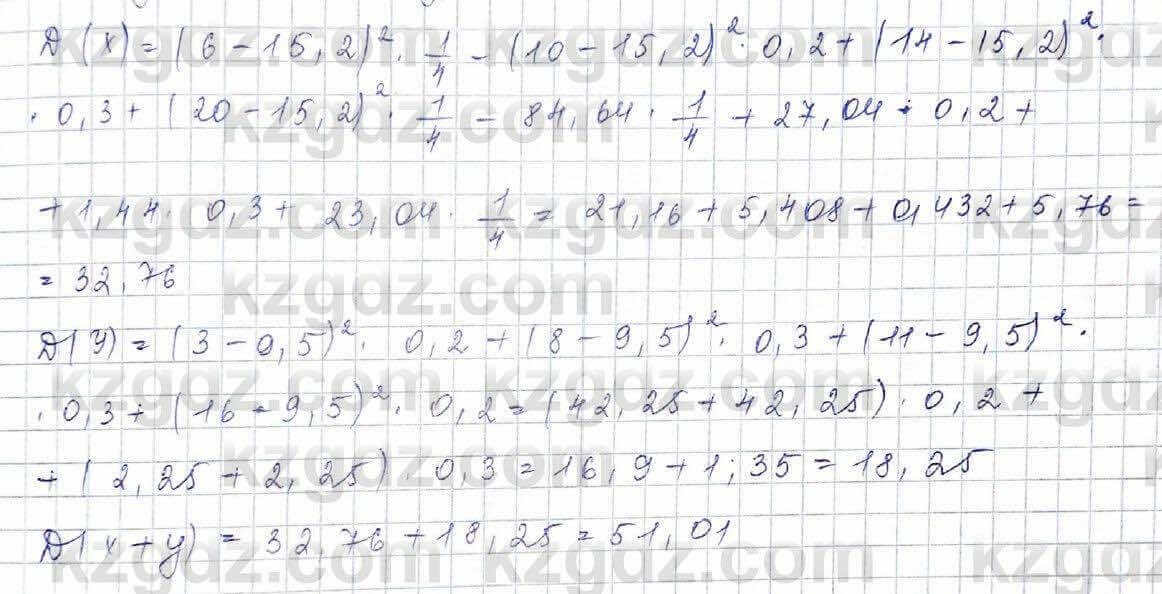 D(x) = (6 - 15,2)² · 1/4 - (10 - 15,2)² · 0,2 + (14 - 15,2)² ·
· 0,3 + (20 - 15,2)² · 1/4 - 84,64 · 1/4 + 27,04 · 0,2 +
+ 1,44 · 0,3 + 23,04 · 1/4 = 21,16 + 5,408 + 0,432 + 5,76 =
= 32,76
D(y) = (3 - 9,5)² · 0,2 + (8 - 9,5)² · 0,3 + (11 - 9,5)² ·
· 0,3 + (16 - 9,5)² · 0,2 = (42,25 + 42,25) · 0,2 +
+ (2,25 + 2,25) · 0,3 = 16,9 + 1;35 = 18,25
D(x + y) = 32,76 + 18,25 = 51,01
kzgdz.com